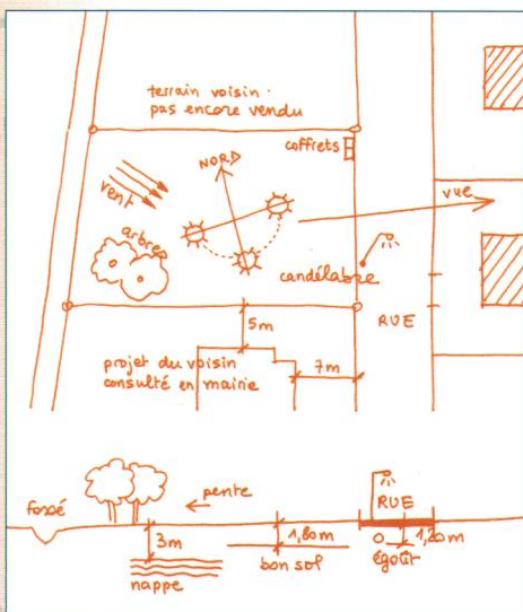 terrain voisin
pas encore vendu
coffrets
NORD
vent
vue
arbres
candélabre
5m
RUE
projet du voisin
consulté en mairie
7m
fossé
pente
RUE
3m
1,80m
1,20m
nappe
bon sol
égoût